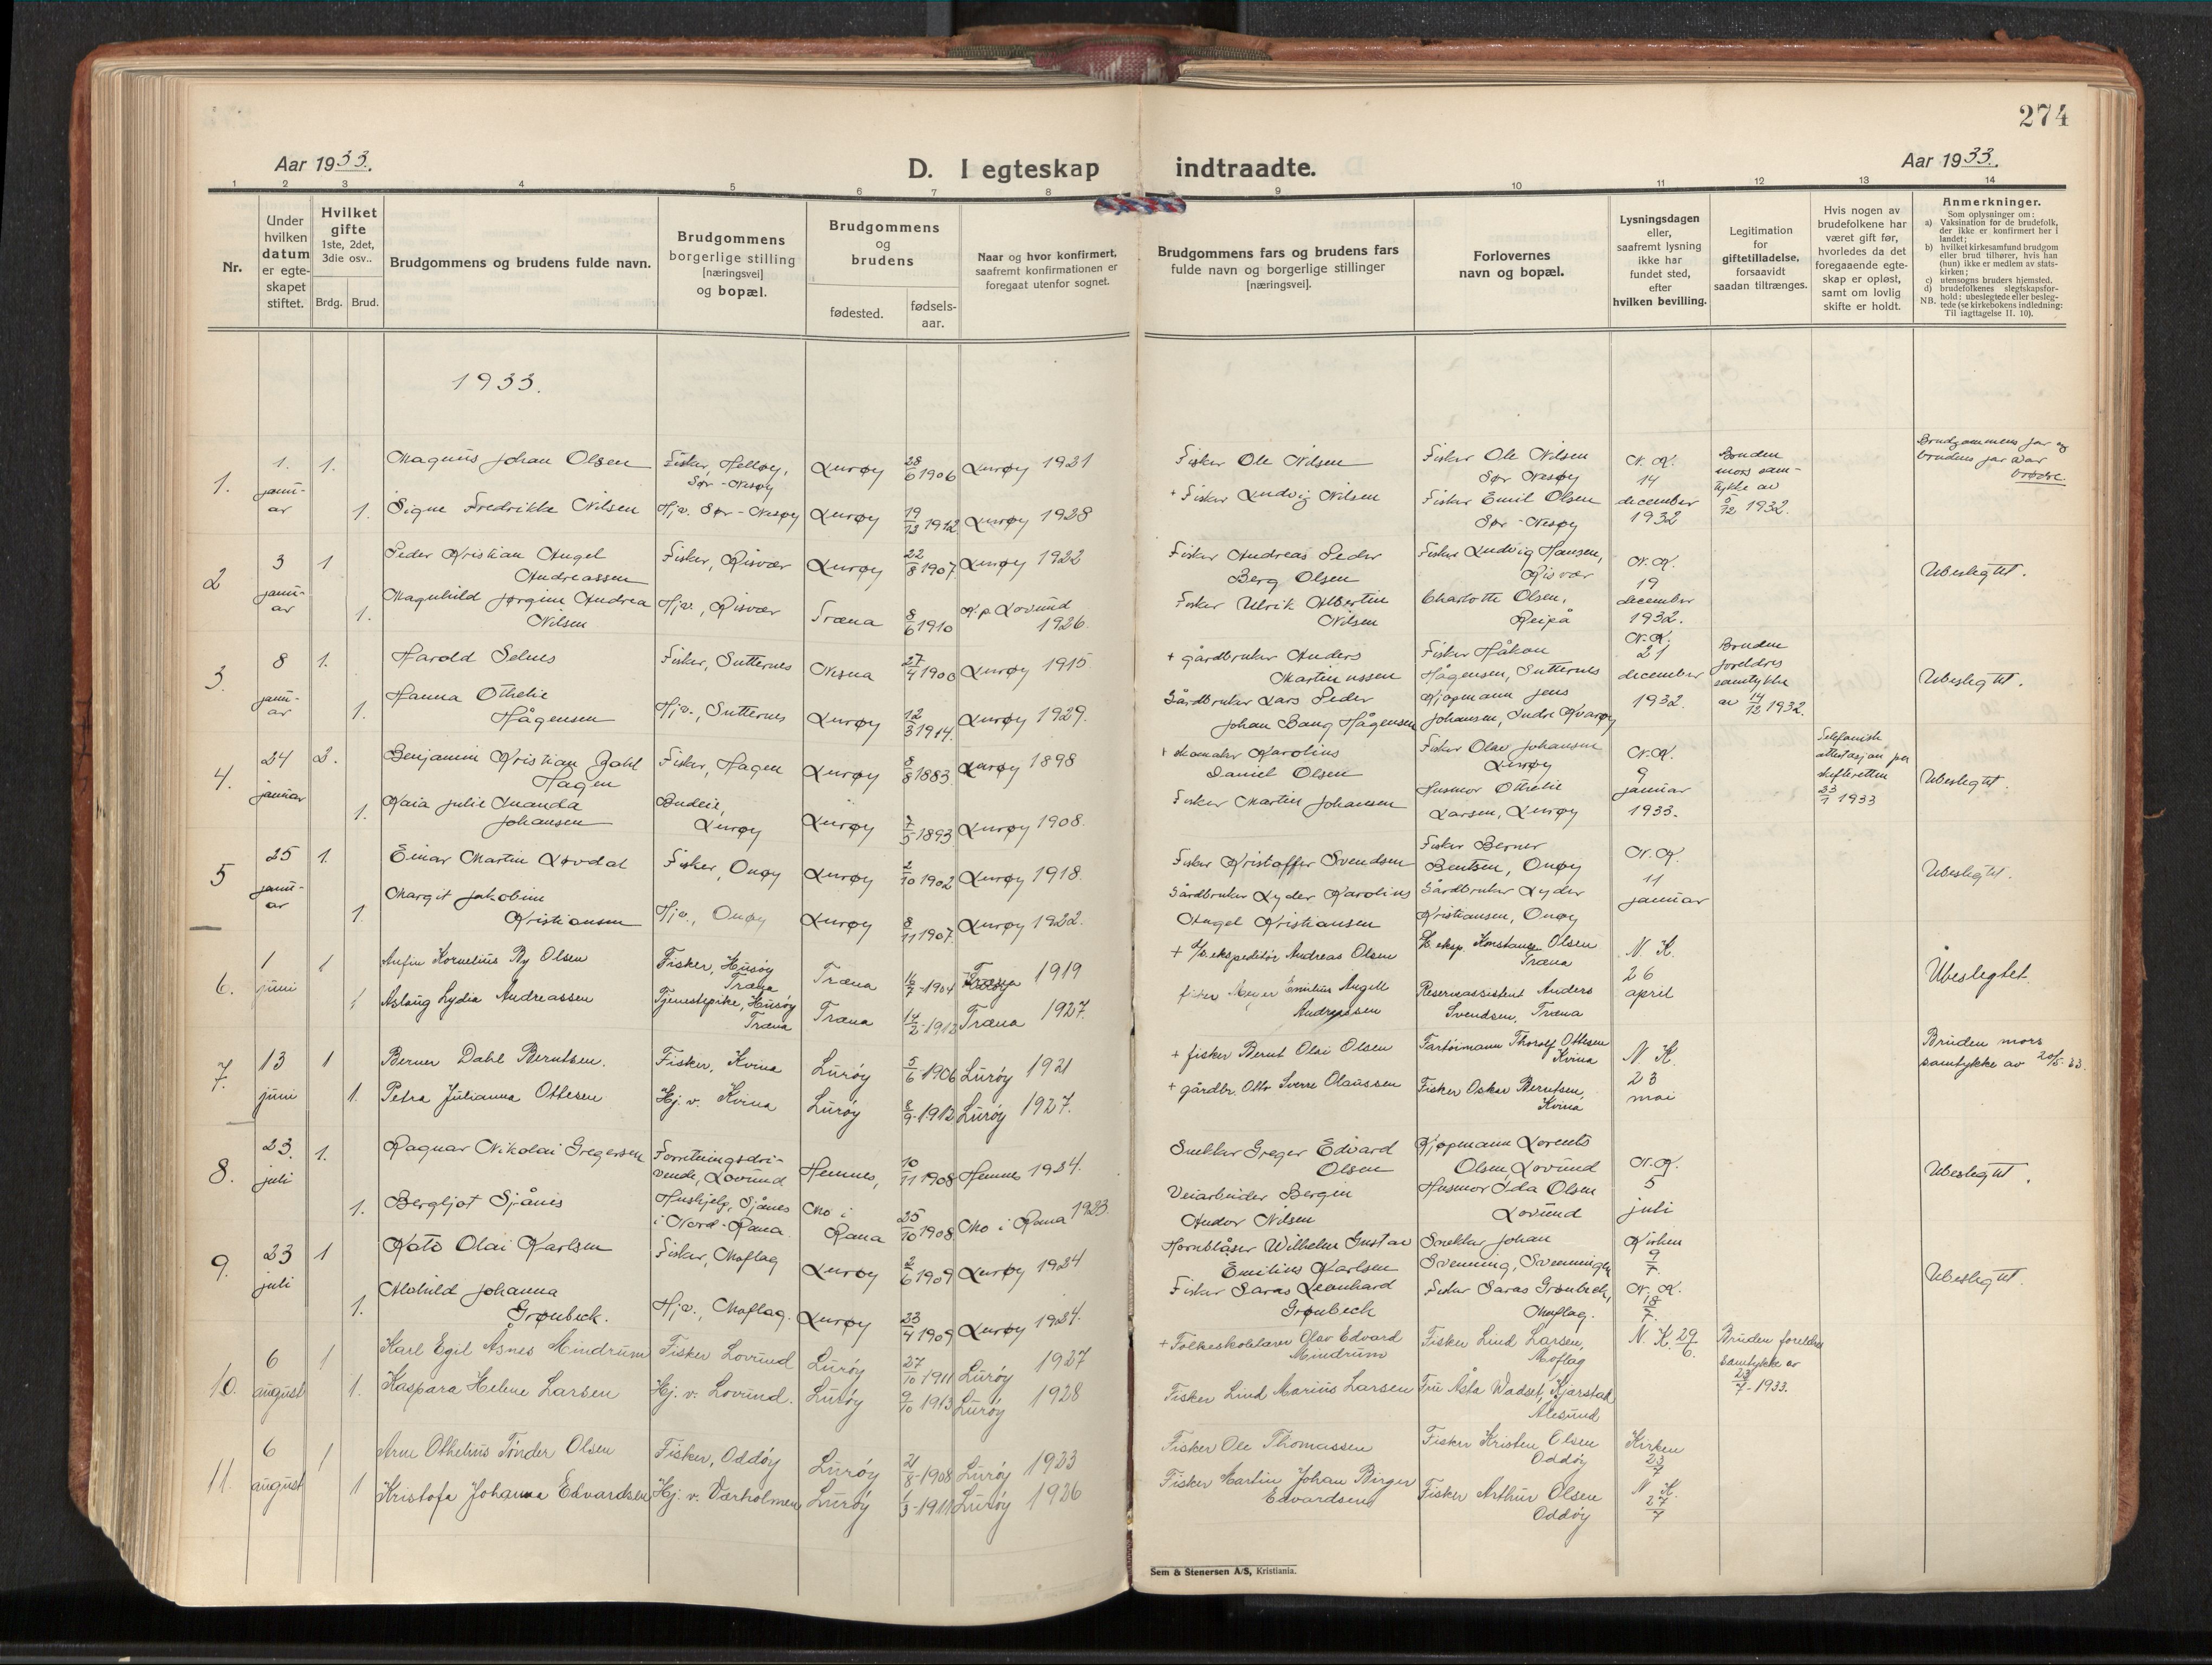 274
Aar 1933.
D. I egteskap indtraadte.
Aar 1933.
1 2 3 4 5 6 7 8 9 10 11 12 13 14
Nr.
Under hvilken datum er egte-skapet stiftet.
Hvilket gifte
1ste, 2det, 3die osv..
Brdg. Brud.
Brudgommens og brudens fulde navn.
Brudgommens borgerlige stilling [næringsvei] og bopæl.
Brudgommens og brudens
fødested.
fødsels-aar.
Naar og hvor konfirmert, saafremt konfirmationen er foregaat utenfor sognet.
Brudgommens fars og brudens fars fulde navn og borgerlige stillinger [næringsvei].
Forlovernes navn og bopæl.
Lysningsdagen eller, saafremt lysning ikke har fundet sted, efter hvilken bevilling.
Legitimation for giftetilladelse, forsaavidt saadan tiltrænges.
Hvis nogen av brudefolkene har været gift før, hvorledes da det foregaaende egte-skap er opløst, samt om lovlig skifte er holdt.
Anmerkninger.
Som oplysninger om:
a) Vaksination for de brudefolk, der ikke er konfirmert her i landet;
b) hvilket kirkesamfund brudgom eller brud tilhører, hvis han (hun) ikke er medlem av stats-kirken;
c) utensogns bruders hjemsted.
d) brudefolkenes slegtskapsfor-hold: ubeslegtede eller besleg-tede (se kirkebokens indledning: Til iagttagelse II. 10).
NB.
1933.
1. 1. januar 1. Magnus Johan Olsen Fisker, Sør-Nesøy Lurøy 28/6 1906 Lurøy 1921 Fisker Ole Nilsen Fisker Ole Nilsen Sør Nesøy N. K. 14 december 1932 Bruden mors sam-tykke av 5/12 1932. Brudgommens far og brudens far var brødre.
1. Signe Fredrikke Nilsen Hjv. Sør-Nesøy Lurøy 19/12 1912 Lurøy 1928 + Fisker Ludvig Nilsen Fisker Emil Olsen Sør-Nesøy
2 3 januar 1 Peder Kristian Angel Andreassen Fisker, Risvær Lurøy 22/8 1907 Lurøy 1922 Fisker Andreas Peder Berg Olsen Fisker Ludvig Hansen, Risvær N. K. 19 december 1932. Ubeslegtet.
1. Magnhild Jørgine Andrea Nilsen Hjv., Risvær Træna 8/6 1910 K.p. Lovund 1926. Fisker Ulrik Albertin Nilsen Charlotte Olsen, Reipå
3. 8 januar 1. Harold Selnes Fisker, Sutternes Nesna 27/4 1900 Lurøy 1915 + gårdbruker Anders Martinussen Fisker Håkon Hågensen, Sutternes N. K. 21 december 1932. Bruden foreldres samtykke av 14/12 1932. Ubeslegtet.
1. Hanna Othelie Hågensen Hjv., Sutternes Lurøy 12/3 1914. Lurøy 1929. Gårdbruker Lars Peder Johan Bang Hågensen Kjøpmann Jens Johansen, Indre Kvarøy
4. 24 januar 2. Benjamin Kristian Dahl Hagen Fisker, Hagen Lurøy 8/8 1883 Lurøy 1898 + skomaker Karolius Daniel Olsen Fisker Olav Johansen Lurøy N. K. 9 januar 1933. Telefonisk attestasjon per skifteretten 23/1 1933 Ubeslegtet.
1. Kaia Julie Inanda Johansen Budeie, Lurøy Lurøy 7/5 1893 Lurøy 1908. Fisker Martin Johansen Husmor Othelie Larsen, Lurøy
5 25 januar 1. Einar Martin Løvdal Fisker, Onøy Lurøy 2/10 1902 Lurøy 1918. Fisker Kristoffer Svendsen Fisker Berner Bentsen, Onøy N. K. 11 januar Ubeslegtet.
1. Margit Jakobine Kristiansen Hjv., Onøy Lurøy 8/11 1907. Lurøy 1922. Gårdbruker Lyder Karolius Angel Kristiansen Gårdbruker Lyder Kristiansen, Onøy
6. 1 juni 1 Anfin Kornelius By Olsen Fisker, Husøy Træna Træna 16/7-1904 Træna 1919 + D/S. ekspeditør Andreas Olsen eksp. Konstance Olsen Træna N. K. 26 april Ubeslegtet.
1 Aslaug Lydia Andreassen Tjenestepike, Husøy Træna Træna 14/2-1912 Træna 1927. fisker Meyer Emilius Angell Andreassen Reserveassistent Anders Svendsen, Træna
7. 13 juni 1 Berner Dahl Berntsen. Fisker, Kvina Lurøy 5/6 1906 Lurøy 1921 + fisker Bernt Olai Olsen Fartøimann Thorolf Ottesen Kvina N K. 23 mai Bruden mors samtykke av 20/5-33.
1. Petra Julianna Ottesen Hj. v. Kvina Lurøy 8/9-1912 Lurøy 1927. + gårdbr. Otto Sverre Olaussen Fisker Oskar Berntsen, Kvina
8. 23. juli 1. Ragnar Nikolai Gregersen Forretningsdri-vende, Lovund Hemnes, 10/11 1908 Hemnes 1924. Snekker Greger Edvard Olsen Kjøpmann Lorents Olsen, Lovund N. K. 5 juli Ubeslegtet.
1. Bergljot Sjånes Hushjelp, Sjånes i Nord-Rana Mo i Rana 25/10 1908 Mo i Rana 1923. Veiarbeider Bergin Andor Nilsen Husmor Ida Olsen Lovund
9. 23 juli 1 Kato Olai Karlsen Fisker, Moflag Lurøy 2/6 1909 Lurøy 1924 Hornblåser Wilhelm Gustav Emilius Karlsen Snekker Johan Svenning, Svenningen Kirken 9/7. Ubeslegtet.
1. Alvhild Johanna Grønbeck. Hjv., Moflag. Lurøy 23/4 1909 Lurøy 1924. Fisker Saras Leonhard Grønbeck Fisker Saras Grønbeck, Moflag. N. K. 18/7.
10. 6 august 1 Karl Egil Åsnes Mindrum Fisker Lovund Lurøy 27/10 1911 Lurøy 1927 + Folkeskolelærer Olav Edvard Mindrum Fisker Lind Larsen, Moflag N. K. 29/6. Bruden foreldres samtykke av 23/7-1933.
1. Kaspara Helene Larsen Hj. v. Lovund. Lurøy 9/10 1913 Lurøy 1928 Fisker Lind Marius Larsen Fru Åsta Wadset, Kjerstad Ålesund
11. 6 august 1 Arne Othelius Tønder Olsen Fisker, Oddøy Lurøy 21/8-1908 Lurøy 1923 Fisker Ole Thomassen Fisker Kristen Olsen Oddøy Kirken 23/7
1 Kristofa Johanna Edvardsen Hj. v. Værholmen Lurøy 1/3-1911 Lurøy 1926 Fisker Martin Johan Birger Edvardsen Fisker Arthur Olsen Oddøy N K. 27/7
Sem & Stenersen A/S, Kristiania.